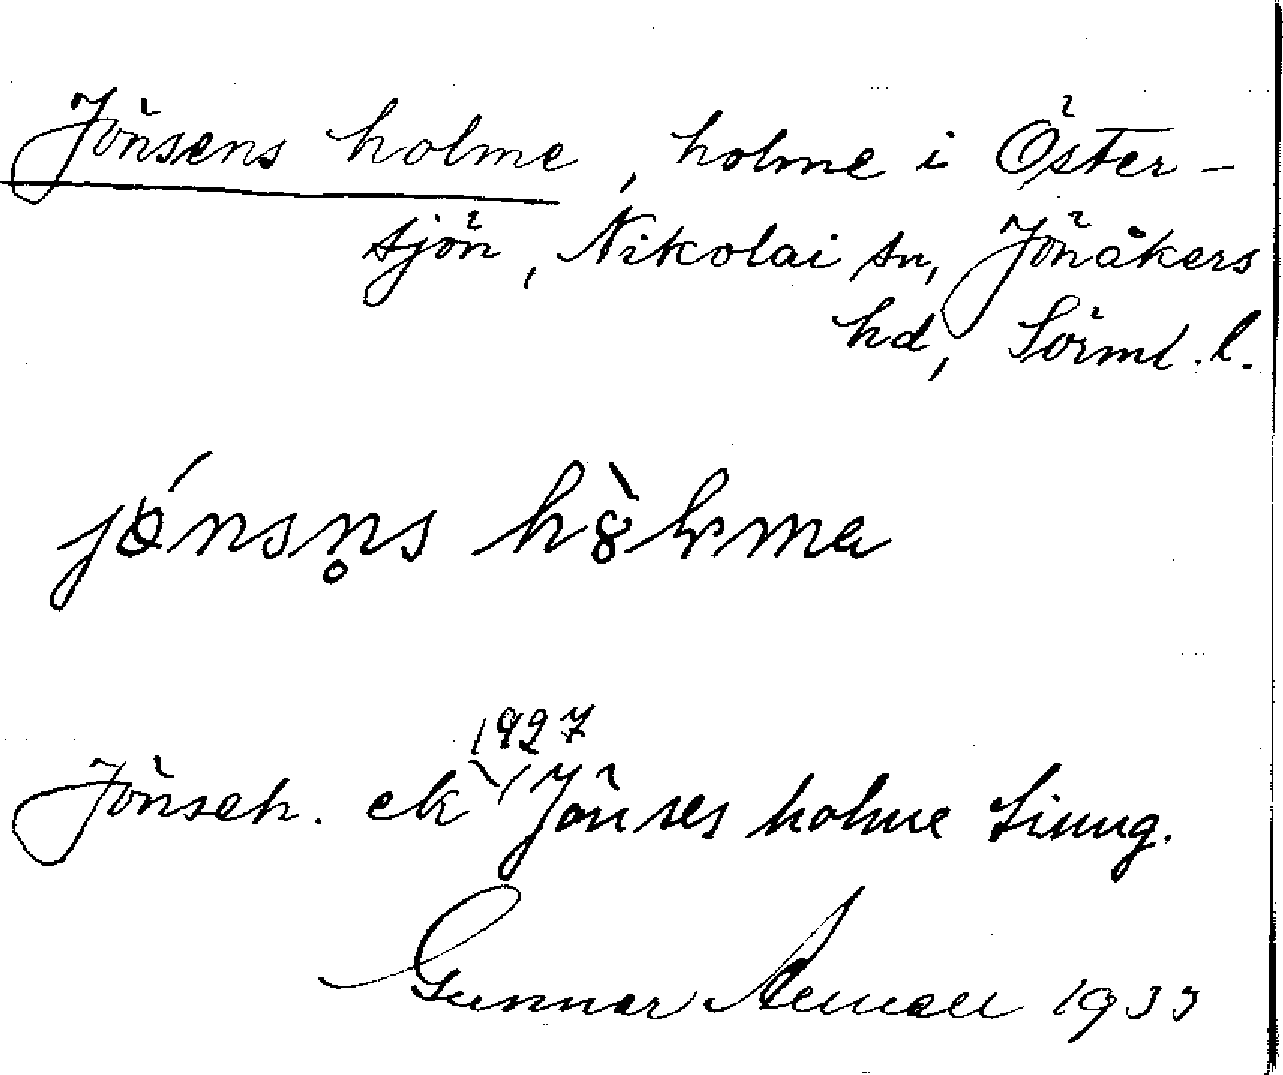 Jönsens holme, holme i Öster-
sjön, Nikolai sn, Jönåkers
hd, Sörml. l.
jǿnsn̥s hòlma
1927
Jönseh. ek Jönses holme
Gunnar 1933